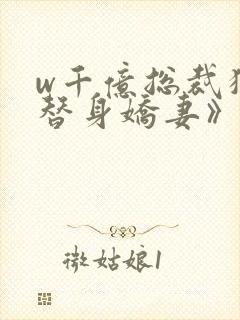 w千亿总裁独
替身娇妻》
微姑娘1